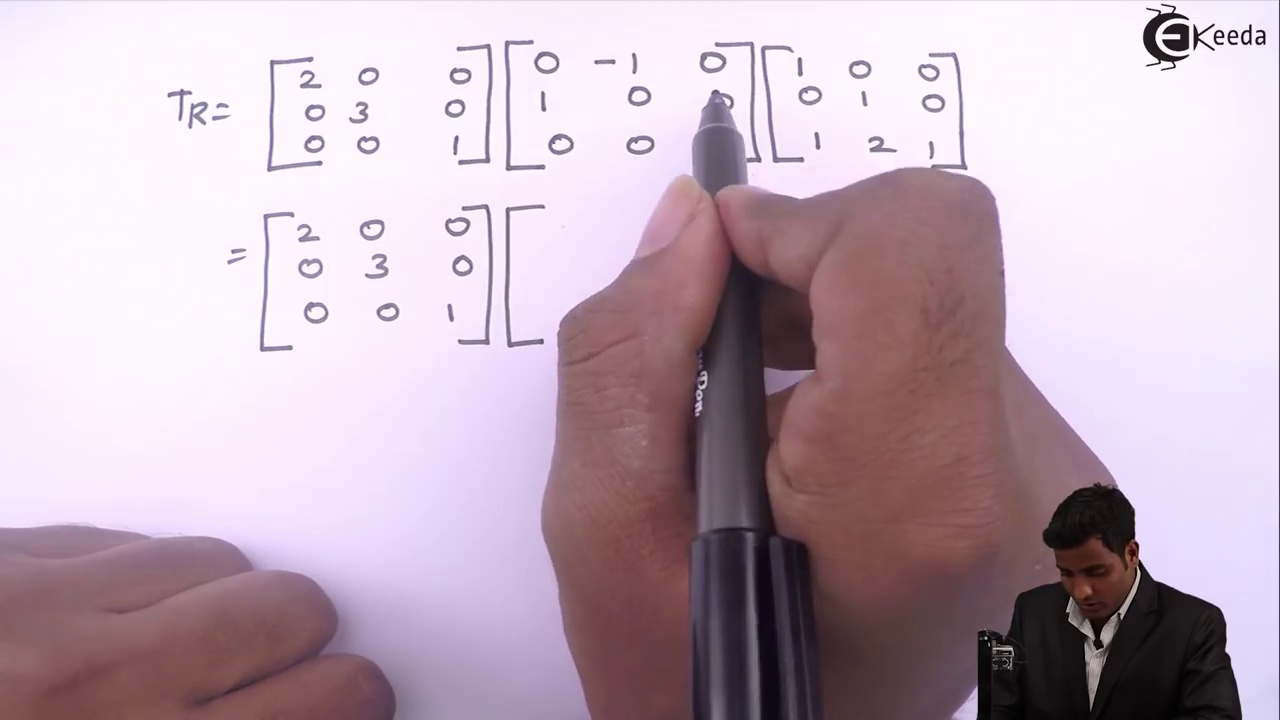 EKeeda
TR = [2 0 0] [0 -1 0] [1 0 0]
[0 3 0] [1 0 0] [0 1 0]
[0 0 1] [0 0 [1 2 1]
= [2 0 0] [
[0 3 0]
[0 0 1]